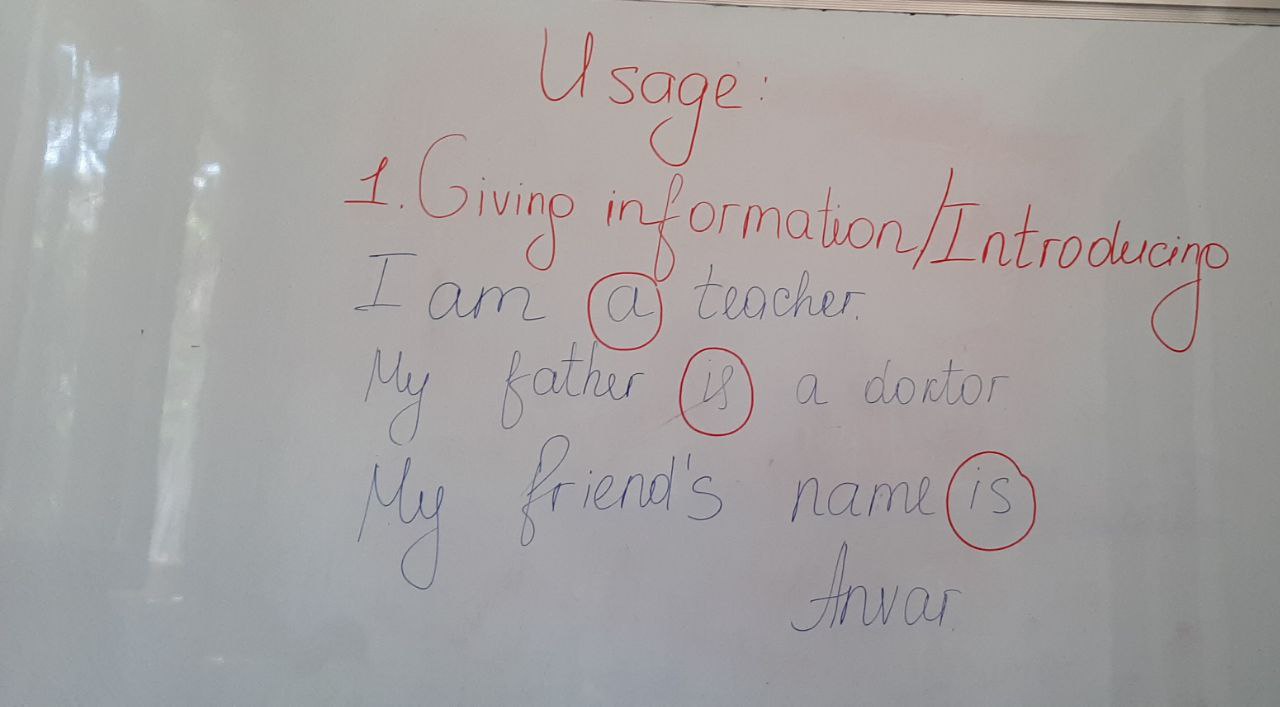 Usage:
1. Giving information/Introducing
I am a teacher.
My father is a doctor
My friend's name is
Anvar.